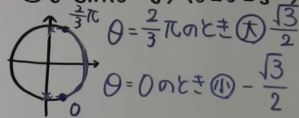 2/3π
θ=2/3πのとき㊅ √3/2
θ=0のとき㊙ -√3/2
0